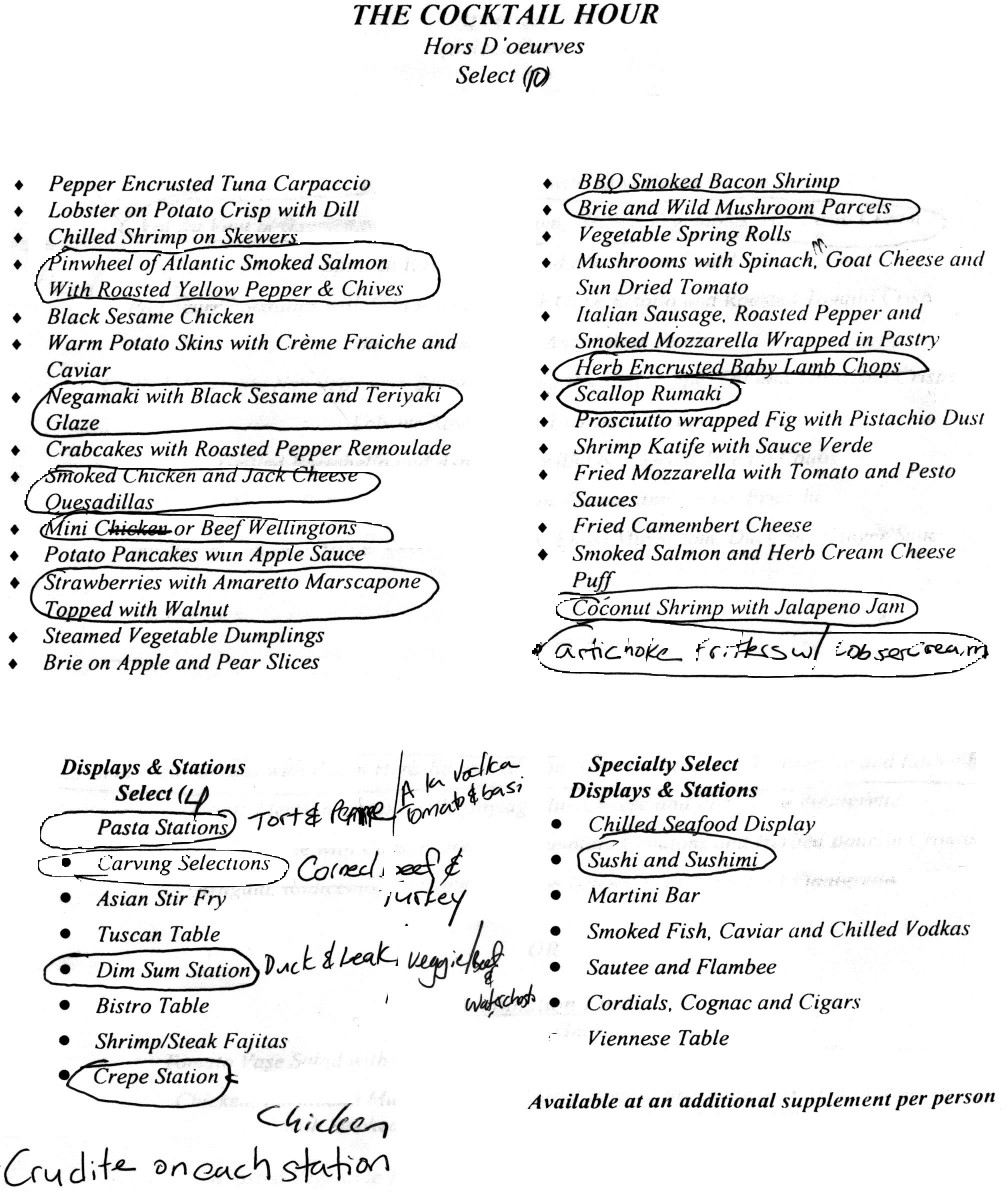 THE COCKTAIL HOUR
Hors D'oeurves
Select (10)
♦ Pepper Encrusted Tuna Carpaccio
♦ Lobster on Potato Crisp with Dill
♦ Chilled Shrimp on Skewers
♦ Pinwheel of Atlantic Smoked Salmon
With Roasted Yellow Pepper & Chives
♦ Black Sesame Chicken
♦ Warm Potato Skins with Crème Fraiche and
Caviar
♦ Negamaki with Black Sesame and Teriyaki
Glaze
♦ Crabcakes with Roasted Pepper Remoulade
♦ Smoked Chicken and Jack Cheese
Quesadillas
♦ Mini Chicken or Beef Wellingtons
♦ Potato Pancakes with Apple Sauce
♦ Strawberries with Amaretto Marscapone
Topped with Walnut
♦ Steamed Vegetable Dumplings
♦ Brie on Apple and Pear Slices
♦ BBQ Smoked Bacon Shrimp
♦ Brie and Wild Mushroom Parcels
♦ Vegetable Spring Rolls
♦ Mushrooms with Spinach, Goat Cheese and
Sun Dried Tomato
♦ Italian Sausage, Roasted Pepper and
Smoked Mozzarella Wrapped in Pastry
♦ Herb Encrusted Baby Lamb Chops
♦ Scallop Rumaki
♦ Prosciutto wrapped Fig with Pistachio Dust
♦ Shrimp Katife with Sauce Verde
♦ Fried Mozzarella with Tomato and Pesto
Sauces
♦ Fried Camembert Cheese
♦ Smoked Salmon and Herb Cream Cheese
Puff
Coconut Shrimp with Jalapeno Jam
artichoke fritters w/ lobser cream
Displays & Stations
Select (4
Pasta Stations Tort & Penne / A la Vodka
Tomato & basi
• Carving Selections Corned beef &
turkey
• Asian Stir Fry
• Tuscan Table
• Dim Sum Station Duck & Leak, veggie / beef
&
• Bistro Table
• Shrimp/Steak Fajitas
• Crepe Station
Chicken
Crudite on each station
Specialty Select
Displays & Stations
• Chilled Seafood Display
• Sushi and Sushimi
• Martini Bar
• Smoked Fish, Caviar and Chilled Vodkas
• Sautee and Flambee
• Cordials, Cognac and Cigars
Viennese Table
Available at an additional supplement per person